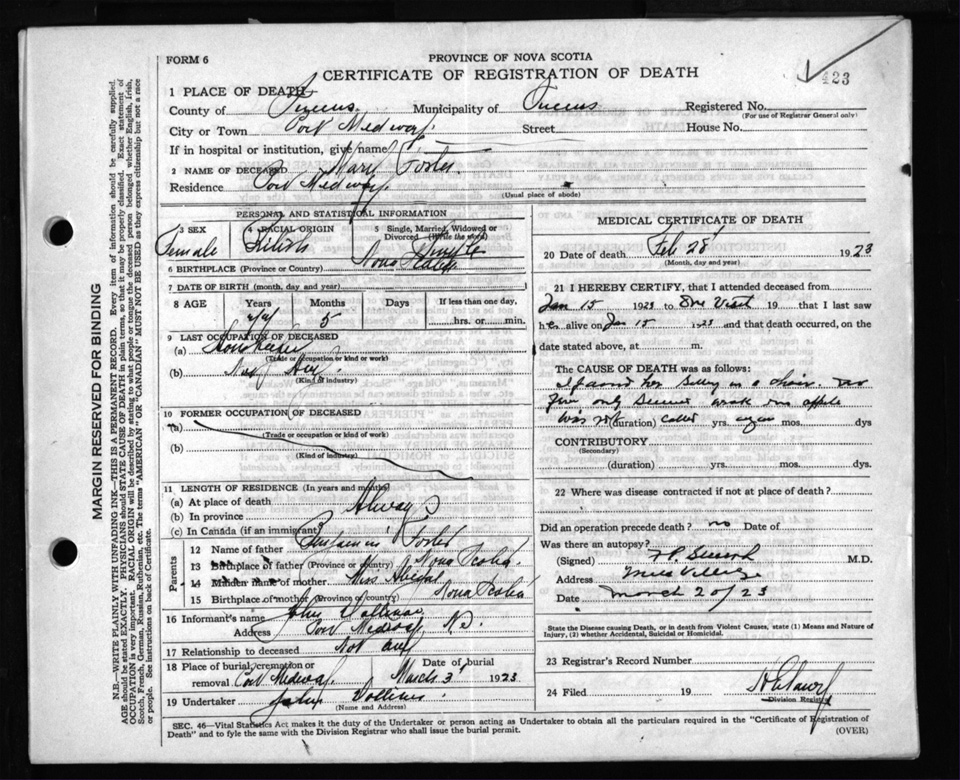 FORM 6
PROVINCE OF NOVA SCOTIA
CERTIFICATE OF REGISTRATION OF DEATH
423
1 PLACE OF DEATH
County of Queens. Municipality of Queens Registered No.
(For use of Registrar General only)
City or Town Port Medway. Street House No.
If in hospital or institution, give name
2 NAME OF DECEASED Mary Foster.
Residence Port Medway.
(Usual place of abode)
PERSONAL AND STATISTICAL INFORMATION
3 SEX 4 RACIAL ORIGIN 5 Single, Married, Widowed or Divorced (Write the word)
Female British Single
6 BIRTHPLACE (Province or Country) Nova Scotia
7 DATE OF BIRTH (month, day and year)
8 AGE Years Months Days If less than one day,
5 hrs. or min.
9 LAST OCCUPATION OF DECEASED
(a) Housekeeper
(Trade or occupation or kind of work)
(b)
(Kind of industry)
10 FORMER OCCUPATION OF DECEASED
(a)
(Trade or occupation or kind of work)
(b)
(Kind of industry)
11 LENGTH OF RESIDENCE (In years and months)
(a) At place of death Always
(b) In province
(c) In Canada (if an immigrant)
Parents
12 Name of father Benjamin Foster
13 Birthplace of father (Province or country) Nova Scotia.
14 Maiden name of mother Miss
15 Birthplace of mother (Province or country) Nova Scotia
16 Informant's name John
Address Port Medway, N.S.
17 Relationship to deceased Not any
18 Place of burial, cremation or removal Port Medway. Date of burial March 3 1923
19 Undertaker John
(Name and Address)
MEDICAL CERTIFICATE OF DEATH
20 Date of death Feb 28 1923
(Month, day and year)
21 I HEREBY CERTIFY, that I attended deceased from
Jan 15 1923 to One Visit 19 that I last saw
her alive on Jan 15 1923 and that death occurred, on the
date stated above, at m.
The CAUSE OF DEATH was as follows:
I found her sitting in a chair. no
only
was not (duration) called yrs. again mos. dys
CONTRIBUTORY
(Secondary)
(duration) yrs. mos. dys.
22 Where was disease contracted if not at place of death?
Did an operation precede death? no Date of
Was there an autopsy?
(Signed) M.D.
Address Mill Village
Date March 20/23
State the Disease causing Death, or in death from Violent Causes, state (1) Means and Nature of Injury, (2) whether Accidental, Suicidal or Homicidal.
23 Registrar's Record Number
24 Filed 19
Division Registrar
SEC. 46—Vital Statistics Act makes it the duty of the Undertaker or person acting as Undertaker to obtain all the particulars required in the "Certificate of Registration of
Death" and to fyle the same with the Division Registrar who shall issue the burial permit. (OVER)
MARGIN RESERVED FOR BINDING
N.B.—WRITE PLAINLY WITH UNFADING INK—THIS IS A PERMANENT RECORD. Every item of information should be carefully supplied.
AGE should be stated EXACTLY. PHYSICIANS should STATE CAUSE OF DEATH in plain terms, so that it may be properly classified. Exact statement of
OCCUPATION is very important. RACIAL ORIGIN will be described by stating to what people or tongue the deceased person belonged whether English, Irish,
Scotch, French, German, Russian, Ruthenian, etc. The terms "AMERICAN" or "CANADIAN" MUST NOT BE USED as they express citizenship but not a race
or people. See instructions on back of Certificate.